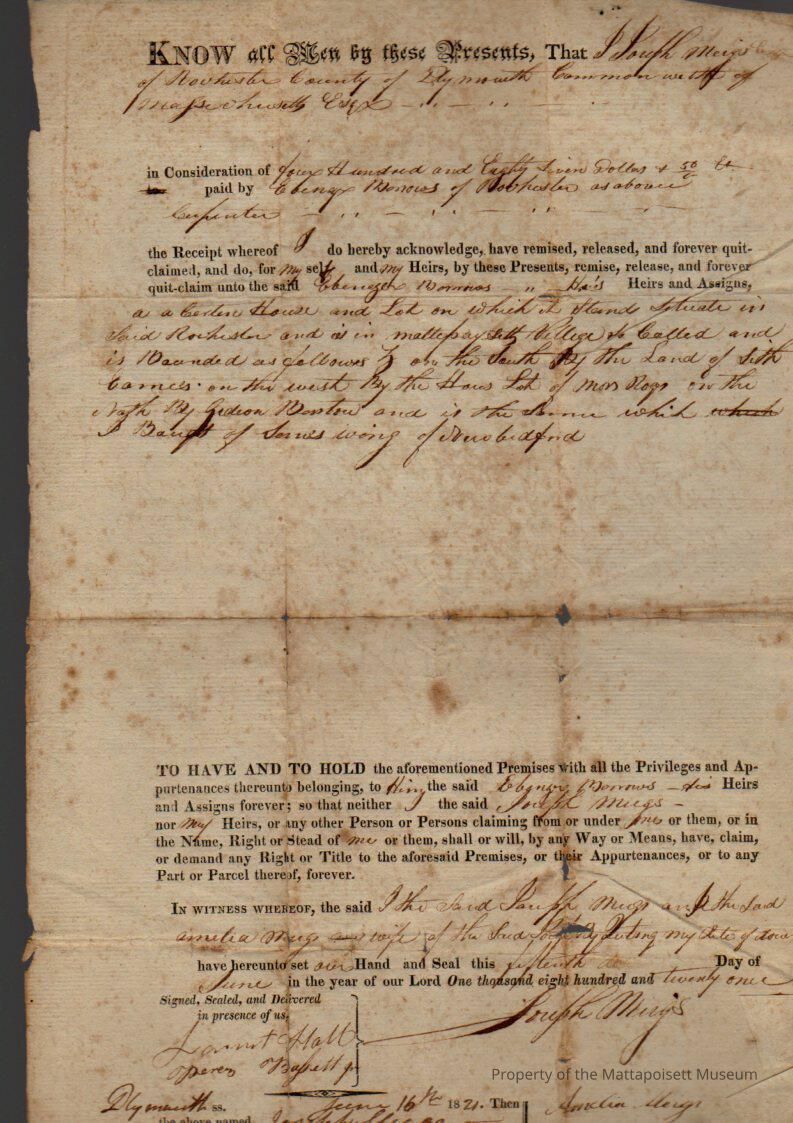 KNOW all Men by these Presents, That I Joseph Meigs
of Rochester County of Plymouth Common welth of
Massachusetts Esqr
in Consideration of four Hundred and Eighty Seven Dollars & 50/c Ct
paid by Ebenezr Borrows of Rochester as above
Carpenter
the Receipt whereof I do hereby acknowledge, have remised, released, and forever quit-
claimed, and do, for my self and my Heirs, by these Presents, remise, release, and forever
quit-claim unto the said Ebenezer Borrows his Heirs and Assigns,
a a Certen House and Lot on which it Stands Situate in
Said Rochester and is in mattepoysett Villige So Called and
is Bounded as follows on the South By the Land of Seth
on the west By the Hous Lot of on the
North By Gideon and is the Same which which
I Baught of James wing of Newbedford
TO HAVE AND TO HOLD the aforementioned Premises with all the Privileges and Ap-
purtenances thereunto belonging, to Him the said Ebenezer Borrows his Heirs
and Assigns forever; so that neither I the said Joseph Meigs
nor my Heirs, or any other Person or Persons claiming from or under me or them, or in
the Name, Right or Stead of me or them, shall or will, by any Way or Means, have, claim,
or demand any Right or Title to the aforesaid Premises, or their Appurtenances, or to any
Part or Parcel thereof, forever.
IN WITNESS WHEREOF, the said I the Said Joseph Meigs and the Said
amelia Meigs wife of the Said my
have hereunto set our Hand and Seal this fifteenth Day of
June in the year of our Lord One thousand eight hundred and twenty one
Signed, Sealed, and Delivered
in presence of us,
Joseph Meigs
Hall
Bassett jr
Property of the Mattapoisett Museum
Plymouth ss. June 16th 1821. Then Amelia Meigs
the above named